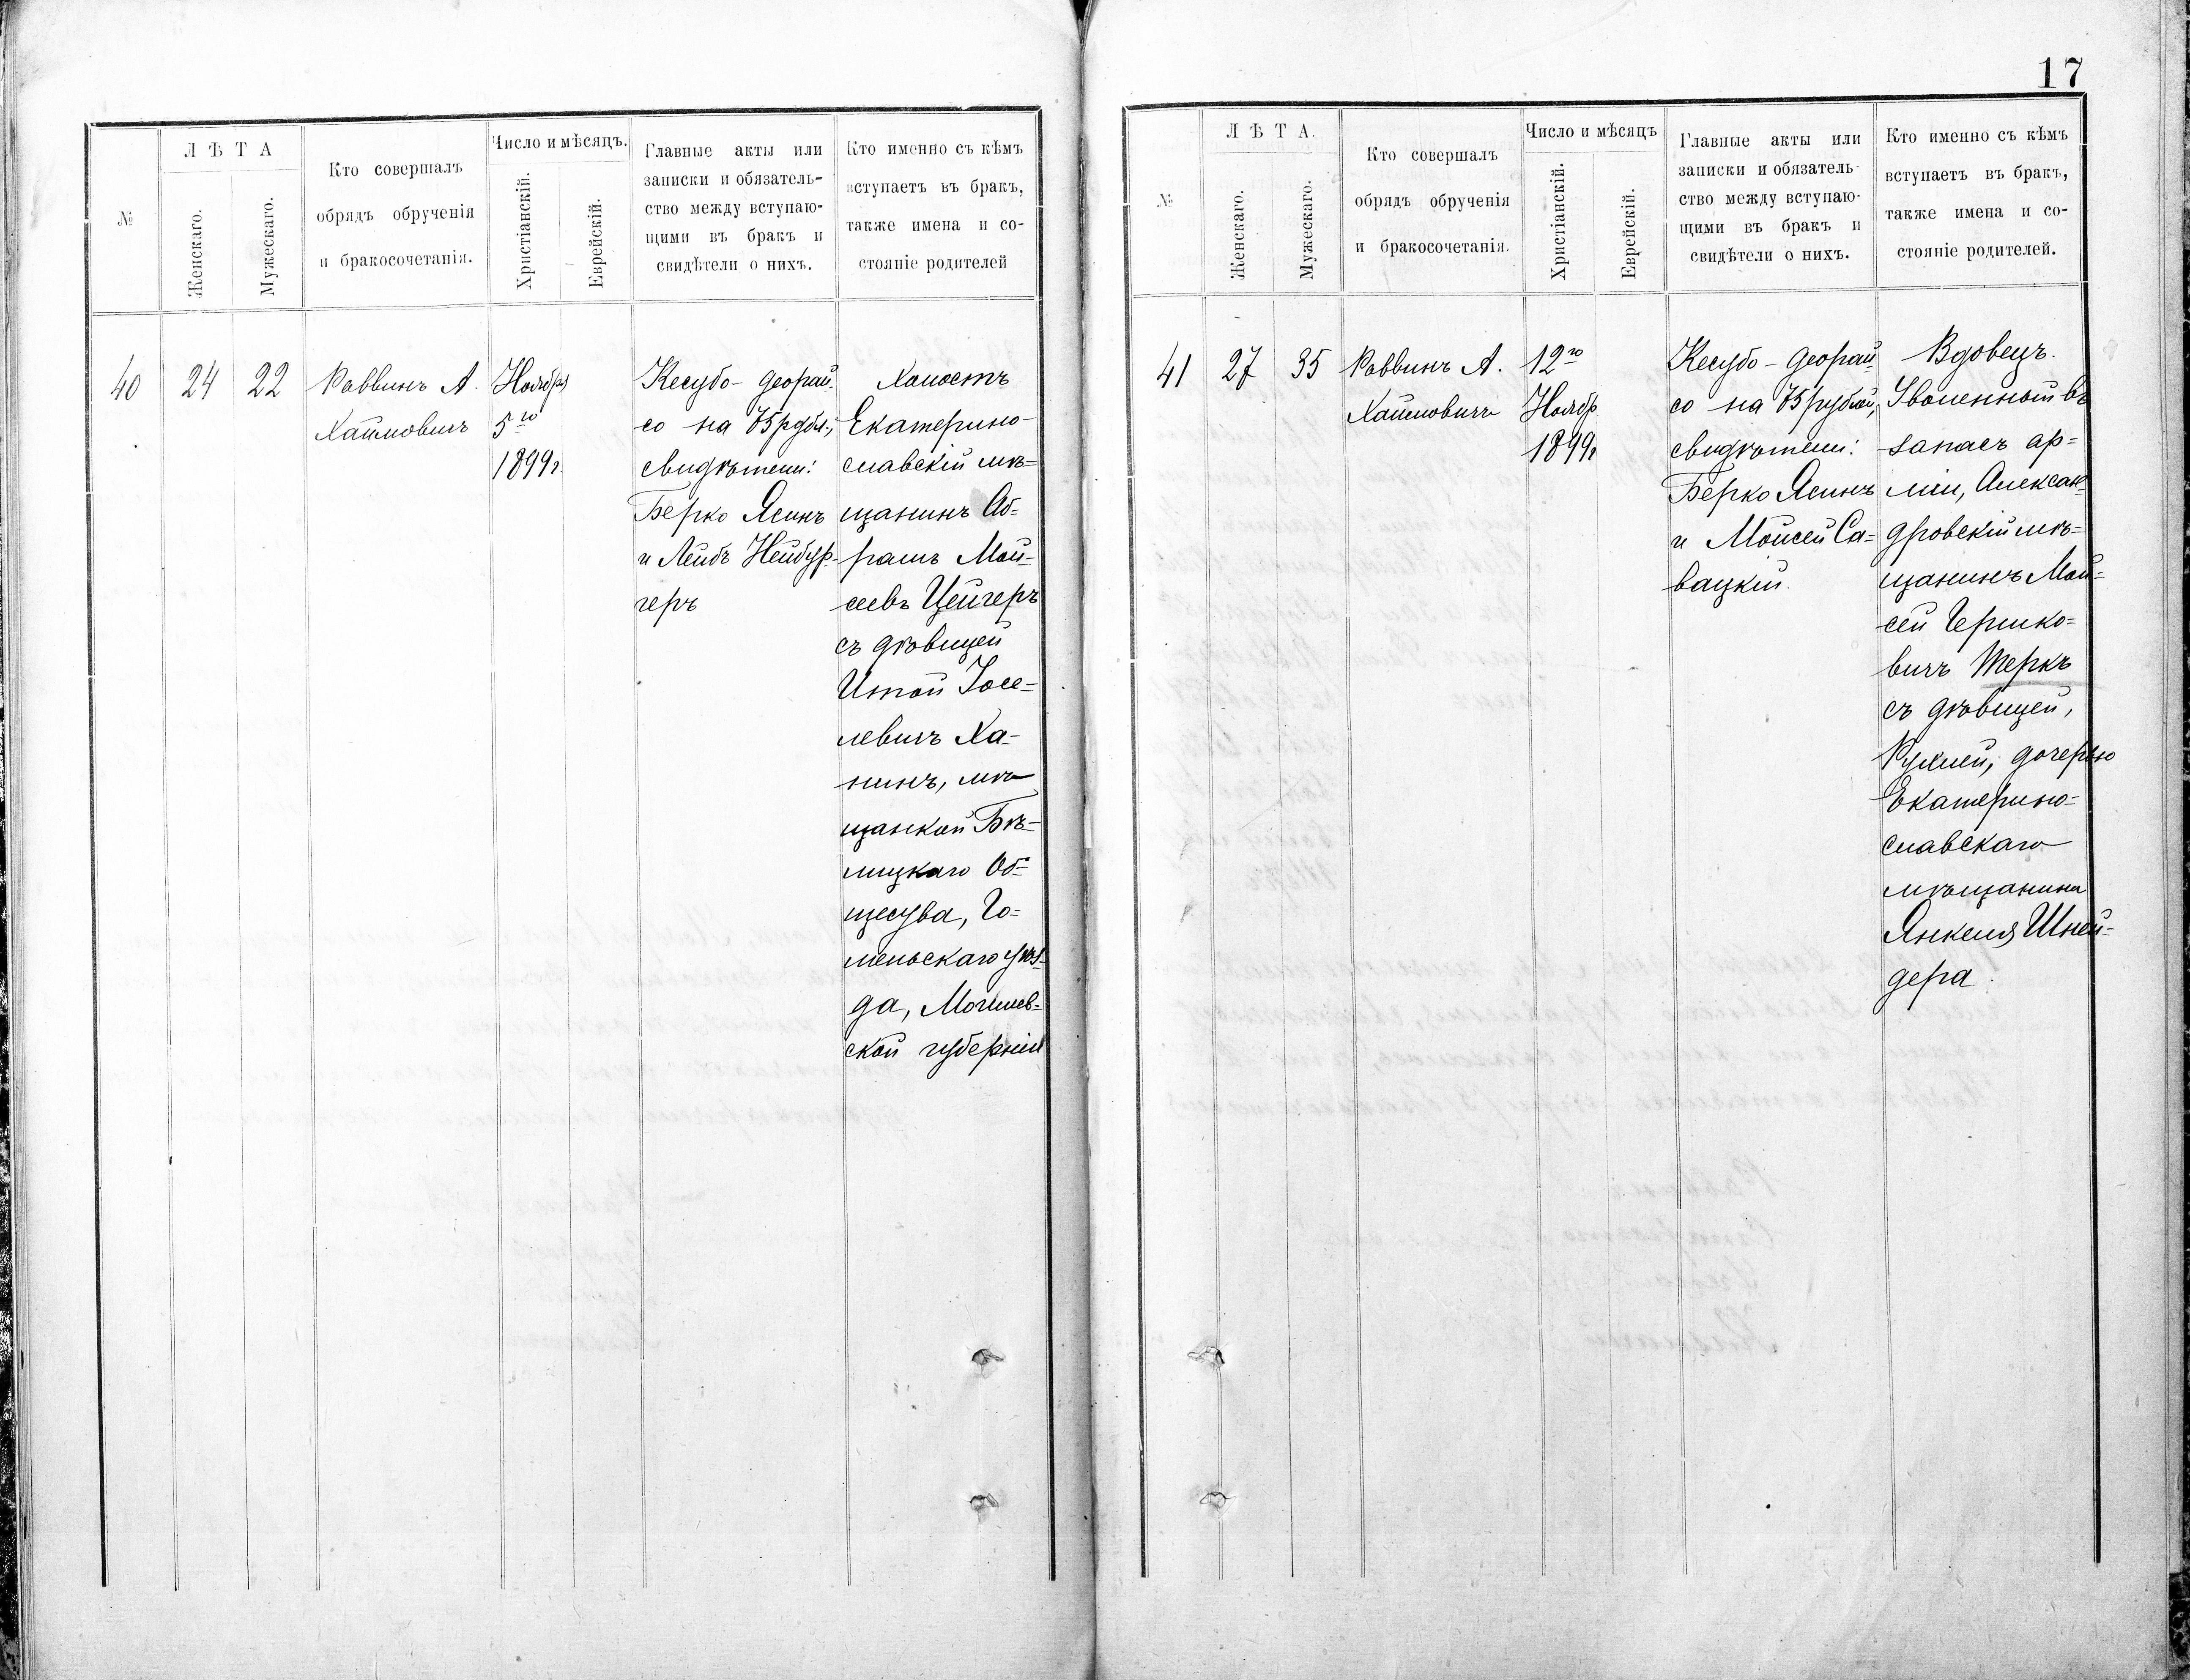 №
ЛѢТА
Женскаго.
Мужескаго.
Кто совершалъ
обрядъ обрученія
и бракосочетанія.
Число и мѣсяцъ.
Христіанскій.
Еврейскій.
Главные акты или
записки и обязатель-
ство между вступаю-
щими въ бракъ и
свидѣтели о нихъ.
Кто именно съ кѣмъ
вступаетъ въ бракъ,
также имена и со-
стояніе родителей
40
24
22
Раввинъ А.
Хаймовичъ
Ноября
5го
1899г.
Кесубо-деорай-
со на 75 рубл.,
свидѣтели:
Берко Ясинъ
и Лейбъ Нейбур-
геръ
Холостъ
Екатерино-
славскій мѣ=
щанинъ Аб-
рамъ Мой-
сеевъ Цейгеръ
съ дѣвицей
Итой Іосе-
левичъ Ха-
нинъ, мѣ
щанкой Бѣ-
лицкаго Об-
щества, Го=
мельскаго уѣз-
да, Могилев-
ской губерніи
17
№
ЛѢТА.
Женскаго.
Мужескаго.
Кто совершалъ
обрядъ обрученія
и бракосочетанія.
Число и мѣсяцъ
Христіанскій.
Еврейскій.
Главные акты или
записки и обязатель-
ство между вступаю-
щими въ бракъ и
свидѣтели о нихъ.
Кто именно съ кѣмъ
вступаетъ въ бракъ,
также имена и со-
стояніе родителей.
41
27
35
Раввинъ А.
Хаймовичъ
12го
Ноябр
1899г
Кесубо-деорай-
со на 75 рублей,
свидѣтели:
Берко Ясинъ
и Мойсей Са=
вацкій.
Вдовецъ.
Уволенный въ
запасъ ар=
міи, Алексан-
дровскій мѣ=
щанинъ Мой=
сей Гершко=
вичъ Теркъ
съ дѣвицей,
Рухлей, дочерью
Екатерино=
славскаго
мѣщанина
Янкеля Шней-
дера.